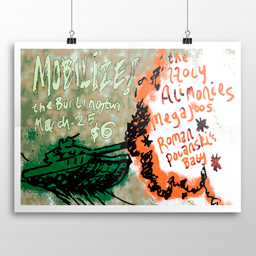 MOBILIZE!
the Burlington
March-25,
$6
the
Holy
Alimonies
megajoos.
Roman
Polanski's
Baby